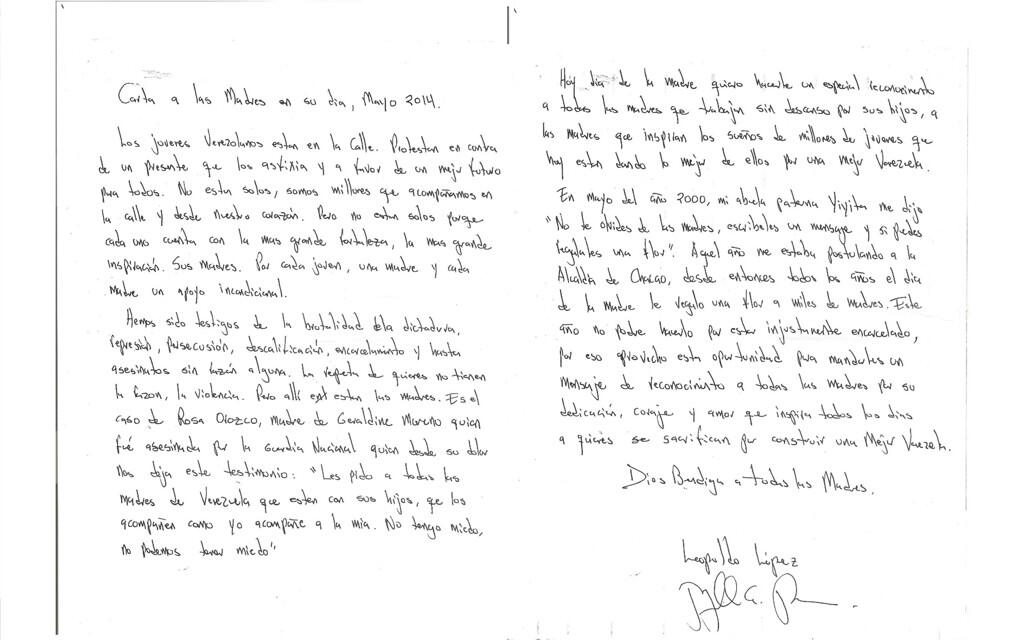 Carta a las Madres en su dia, Mayo 2014.
Los jovenes Venezolanos estan en la Calle. Protestan en contra
de un presente que los asfixia y a favor de un mejor futuro
para todos. No estan solos, somos millones que acompañamos en
la calle y desde nuestro corazón. Pero no estan solos porque
cada uno cuenta con la mas grande fortaleza, la mas grande
inspiración. Sus Madres. Por cada joven, una madre y cada
Madre un apoyo incondicional.
Hemos sido testigos de la brutalidad de la dictadura,
represión, persecusión, descalificación, encarcelamiento y hasta
asesinatos sin razón alguna. La repuesta de quienes no tienen
la razon, la violencia. Pero allí estan las madres. Es el
caso de Rosa Orozco, madre de Geraldine Moreno quien
fué asesinada por la Guardia Nacional quien desde su dolor
nos deja este testimonio: "Les pido a todas las
madres de Venezuela que esten con sus hijos, que los
acompañen como yo acompañe a la mia. No tengo miedo,
no podemos tener miedo"
Hoy dia de la madre quiero hacerle un especial reconocimiento
a todas las madres que trabajan sin descanso por sus hijos, a
las Madres que inspiran los sueños de millones de jovenes que
hoy estan dando lo mejor de ellos por una mejor Venezuela.
En Mayo del año 2000, mi abuela paterna Yiyita me dijo
"No te olvides de las madres, escribeles un mensaje y si puedes
regalales una flor". Aquel año me estaba postulando a la
Alcaldía de Chacao, desde entonces todos los años el dia
de la madre le regalo una flor a miles de madres. Este
año no podre hacerlo por estar injustamente encarcelado,
por eso aprovecho esta oportunidad para mandarles un
Mensaje de reconocimiento a todas las Madres por su
dedicación, coraje y amor que inspira todos los dias
a quienes se sacrifican por construir una Mejor Venezuela.
Dios Bendiga a todas las Madres.
Leopoldo López